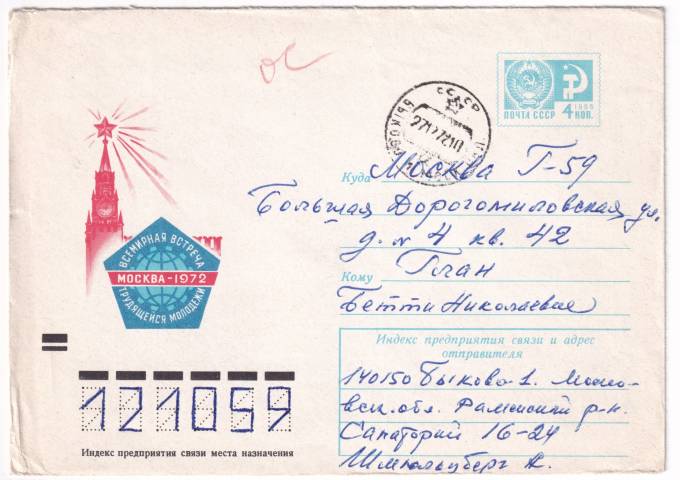 ос
СССР
БЫКОВО
ПОЧТА СССР
1966
4 КОП.
Куда Москва Г-59
Большая Дорогомиловская ул.
д. № 4 кв. 42
Кому Глан
Бетти Николаевне
ВСЕМИРНАЯ ВСТРЕЧА
МОСКВА-1972
ТРУДЯЩЕЙСЯ МОЛОДЕЖИ
121059
Индекс предприятия связи места назначения
Индекс предприятия связи и адрес
отправителя
140150 Быково-1. Моско-
вск. обл. Раменский р-н.
Санаторий 16-24
А.